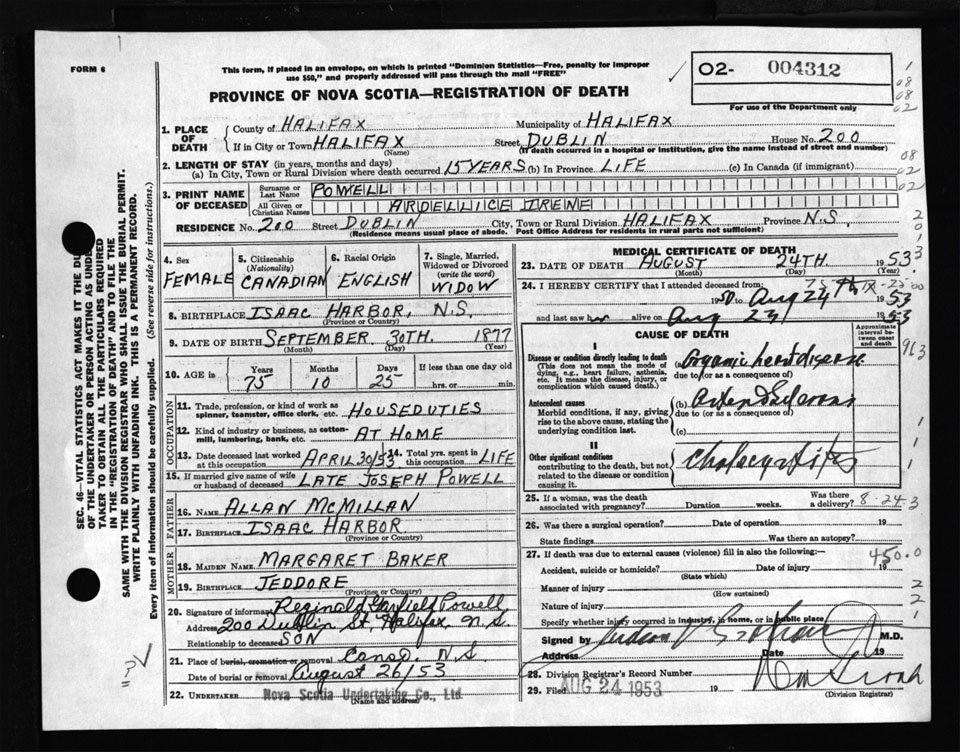 FORM 6
This form, if placed in an envelope, on which is printed "Dominion Statistics—Free, penalty for improper
use $50," and properly addressed will pass through the mail "FREE"
O2- 004312
For use of the Department only
PROVINCE OF NOVA SCOTIA—REGISTRATION OF DEATH
1. PLACE OF DEATH
County of HALIFAX Municipality of HALIFAX
If in City or Town HALIFAX Street DUBLIN House No. 200
(Name) (If death occurred in a hospital or institution, give the name instead of street and number)
2. LENGTH OF STAY (in years, months and days)
(a) In City, Town or Rural Division where death occurred 15 YEARS (b) In Province LIFE (c) In Canada (if immigrant)
3. PRINT NAME OF DECEASED
Surname or Last Name POWELL
All Given or Christian Names ARDELLICE IRENE
RESIDENCE No. 200 Street DUBLIN City, Town or Rural Division HALIFAX Province N.S.
(Residence means usual place of abode. Post Office Address for residents in rural parts not sufficient)
4. Sex
FEMALE
5. Citizenship (Nationality)
CANADIAN
6. Racial Origin
ENGLISH
7. Single, Married, Widowed or Divorced (write the word)
WIDOW
8. BIRTHPLACE ISAAC HARBOR, N.S.
(Province or Country)
9. DATE OF BIRTH SEPTEMBER 30TH. 1877
(Month) (Day) (Year)
10. AGE in
Years Months Days If less than one day old
75 10 25 hrs. or min.
OCCUPATION
11. Trade, profession, or kind of work as spinner, teamster, office clerk, etc. HOUSEDUTIES
12. Kind of industry or business, as cotton-mill, lumbering, bank, etc. AT HOME
13. Date deceased last worked at this occupation APRIL 30/53
14. Total yrs. spent in this occupation LIFE
15. If married give name of wife or husband of deceased LATE JOSEPH POWELL
FATHER
16. NAME ALLAN McMILLAN
17. BIRTHPLACE ISAAC HARBOR
(Province or Country)
MOTHER
18. MAIDEN NAME MARGARET BAKER
19. BIRTHPLACE JEDDORE
(Province or Country)
20. Signature of informant Reginald Garfield Powell
Address 200 Dublin St, Halifax, N.S.
Relationship to deceased SON
21. Place of burial, cremation or removal N.S
Date of burial or removal August 26/53
22. UNDERTAKER Nova Scotia Undertaking Co., Ltd.
(Name and address)
MEDICAL CERTIFICATE OF DEATH
23. DATE OF DEATH AUGUST 24TH 1953
(Month) (Day) (Year)
24. I HEREBY CERTIFY that I attended deceased from?
to Aug 24 1953
and last saw her alive on Aug 23 1953
CAUSE OF DEATH
Approximate interval between onset and death
I
Disease or condition directly leading to death
(This does not mean the mode of dying, e.g., heart failure, asthenia, etc. It means the disease, injury, or complication which caused death.)
Organic heart disease
due to (or as a consequence of)
Antecedent causes
Morbid conditions, if any, giving rise to the above cause, stating the underlying condition last.
(b)
due to (or as a consequence of)
(c)
II
Other significant conditions
contributing to the death, but not related to the disease or condition causing it.
25. If a woman, was the death associated with pregnancy? Duration weeks. Was there a delivery?
8-24-3
26. Was there a surgical operation? Date of operation 19
State findings Was there an autopsy?
27. If death was due to external causes (violence) fill in also the following:—
450.0
Accident, suicide or homicide? Date of injury 19
(State which)
Manner of injury
(How sustained)
Nature of injury
Specify whether injury occurred in industry, in home, or in public place
Signed by M.D.
Address Date 19
28. Division Registrar's Record Number
29. Filed AUG 24 1953 19
(Division Registrar)
SEC. 46—VITAL STATISTICS ACT MAKES IT THE DU
OF THE UNDERTAKER OR PERSON ACTING AS UNDER
TAKER TO OBTAIN ALL THE PARTICULARS REQUIRED
IN THE "REGISTRATION OF DEATH" AND TO FILE THE
SAME WITH THE DIVISION REGISTRAR WHO SHALL ISSUE THE BURIAL PERMIT.
WRITE PLAINLY WITH UNFADING INK. THIS IS A PERMANENT RECORD.
Every item of information should be carefully supplied. (See reverse side for instructions.)